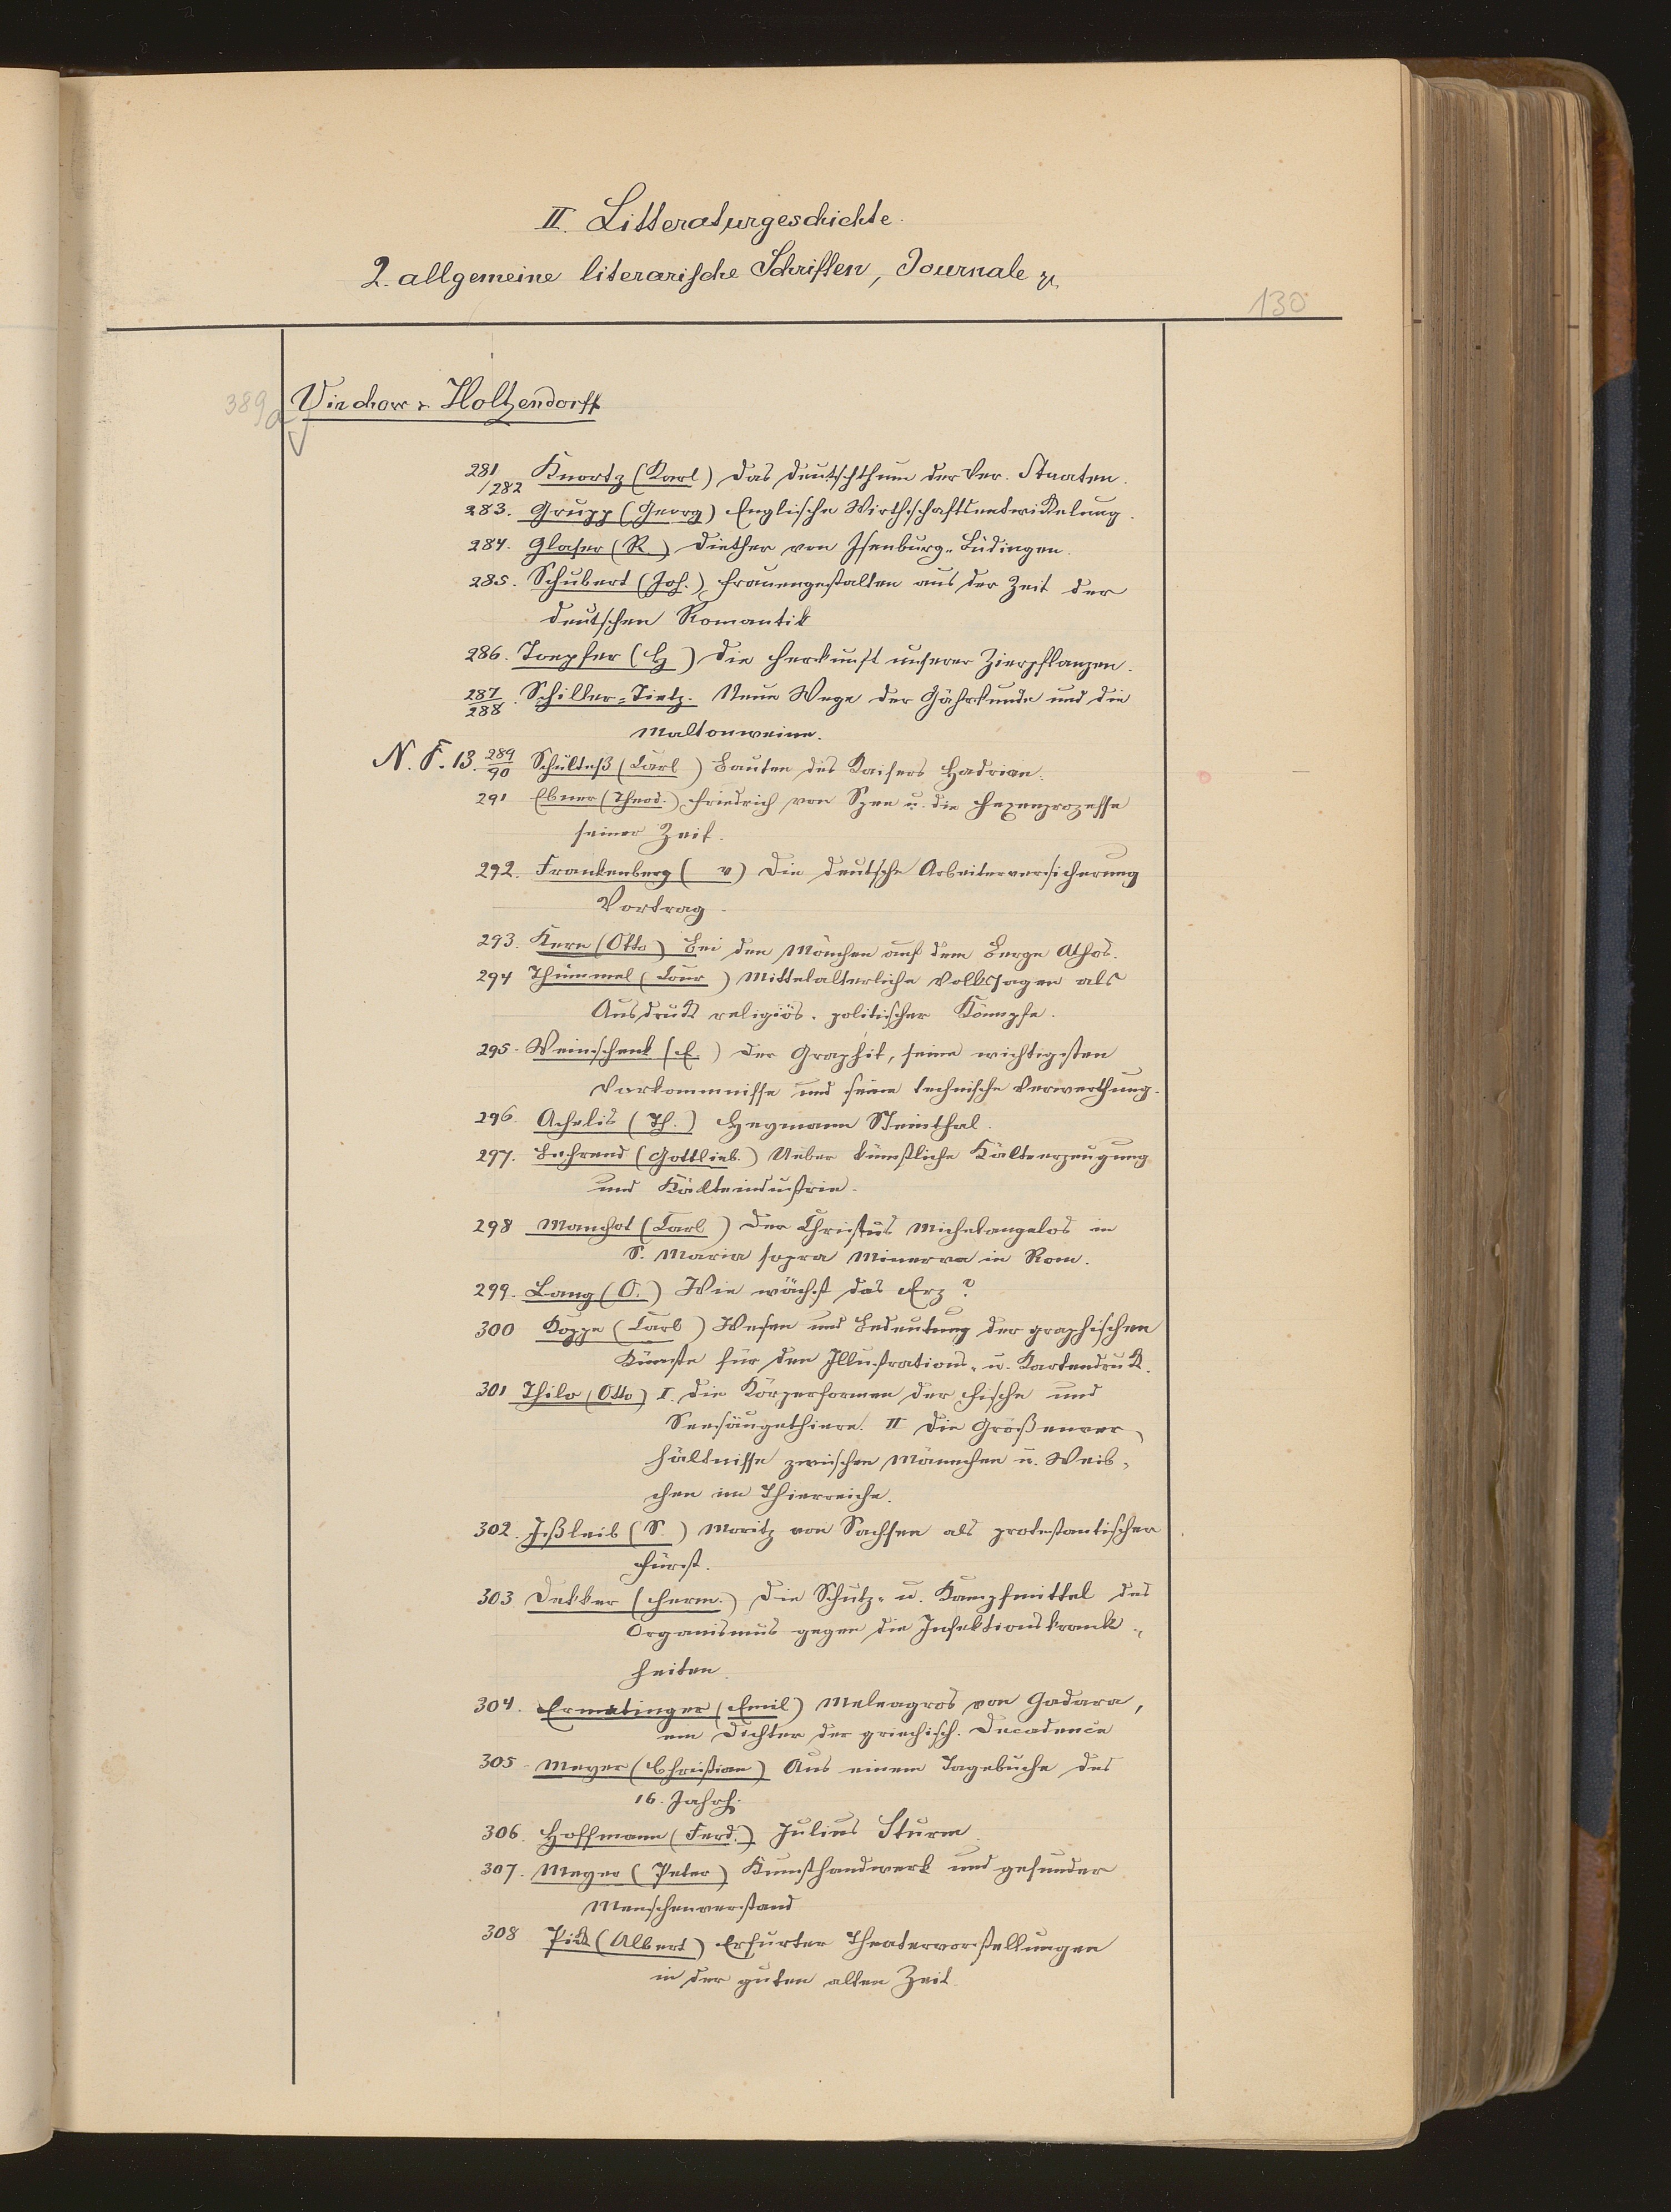 II. Litteraturgeschichte.
2. allgemeine literarische Schriften, Journale &c.
130
389a
Virchow & Holtzendorff
281/282 Knortz (Karl) Das Deutschthum der Ver. Staaten.
283. Grupp (Georg) Englische Wirthschaftsentwickelung.
284. Glaser (R.) Diether von Isenburg-Büdingen.
285. Schubert (Joh.) Frauengestalten aus der Zeit der
deutschen Romantik
286. Toepfer (H) Die Herkunft unserer Zierpflanzen.
287/288. Schiller-Tietz. Neue Wege der Gährkunde und die
Maltonweine.
N. F. 13. 289/90 Schultess (Carl) Bauten des Kaisers Hadrian.
291 Ebner (Theod.) Friedrich von Spee u. die Hexenprozesse
seiner Zeit.
292. Frankenberg ( v) Die deutsche Arbeiterversicherung
Vortrag.
293. Kern (Otto) Bei den Mönchen auf dem Berge Athos.
294 Thümmel (Conr) Mittelalterliche Volkssagen als
Ausdruck religiös-politischer Kämpfe.
295. Weinschenk (E.) Der Graphit, seine wichtigsten
Vorkommnisse und seine technische Verwerthung.
296. Achelis (Th.) Heymann Steinthal.
297. Behrend (Gottlieb.) Ueber künstliche Kälteerzeugung
und Kälteindustrie.
298 Manchot (Carl) Der Christus Michelangelos in
S. Maria sopra Minerva in Rom.
299. Lang (O.) Wie wächst das Erz?
300 Koppe (Carl) Wesen und Bedeutung der graphischen
Künste für den Illustrations- u. Kartendruck.
301 Thilo (Otto) I. Die Körperformen der Fische und
Seesäugethiere. II Die Größenver-
hältnisse zwischen Männchen u. Weib-
chen im Thierreiche.
302. Ißleib (S.) Moritz von Sachsen als protestantischer
Fürst.
303 Dekker (Herm.) Die Schutz- u. Kampfmittel des
Organismus gegen die Infektionskrank-
heiten.
304. Ermatinger (Emil) Meleagros von Gadara,
ein Dichter der griechisch. Decadence
305 Meyer (Christian) Aus einem Tagebuche des
16. Jahrh.
306. Hoffmann (Ferd.) Julius Sturm.
307. Meyer (Peter) Kunsthandwerk und gesunder
Menschenverstand
308 Pick (Albert) Erfurter Theatervorstellungen
in der guten alten Zeit.